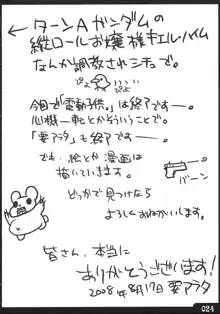 ←ターンAガンダムの
縦ロールお嬢様キエル・ハイム
なんか調教されシチュで。
ぴよ
ぴよ
今回で「電動子供。」は終了ですー。
心機一転とかそういうことで。
「要アラタ」も終了ですー。
でも、絵とか漫画は
描いていきます。
バーン
どっかで見つけたら
よろしくおねがいします。
皆さん、本当に
ありがとうございます！
2008年8月17日 要アラタ
024